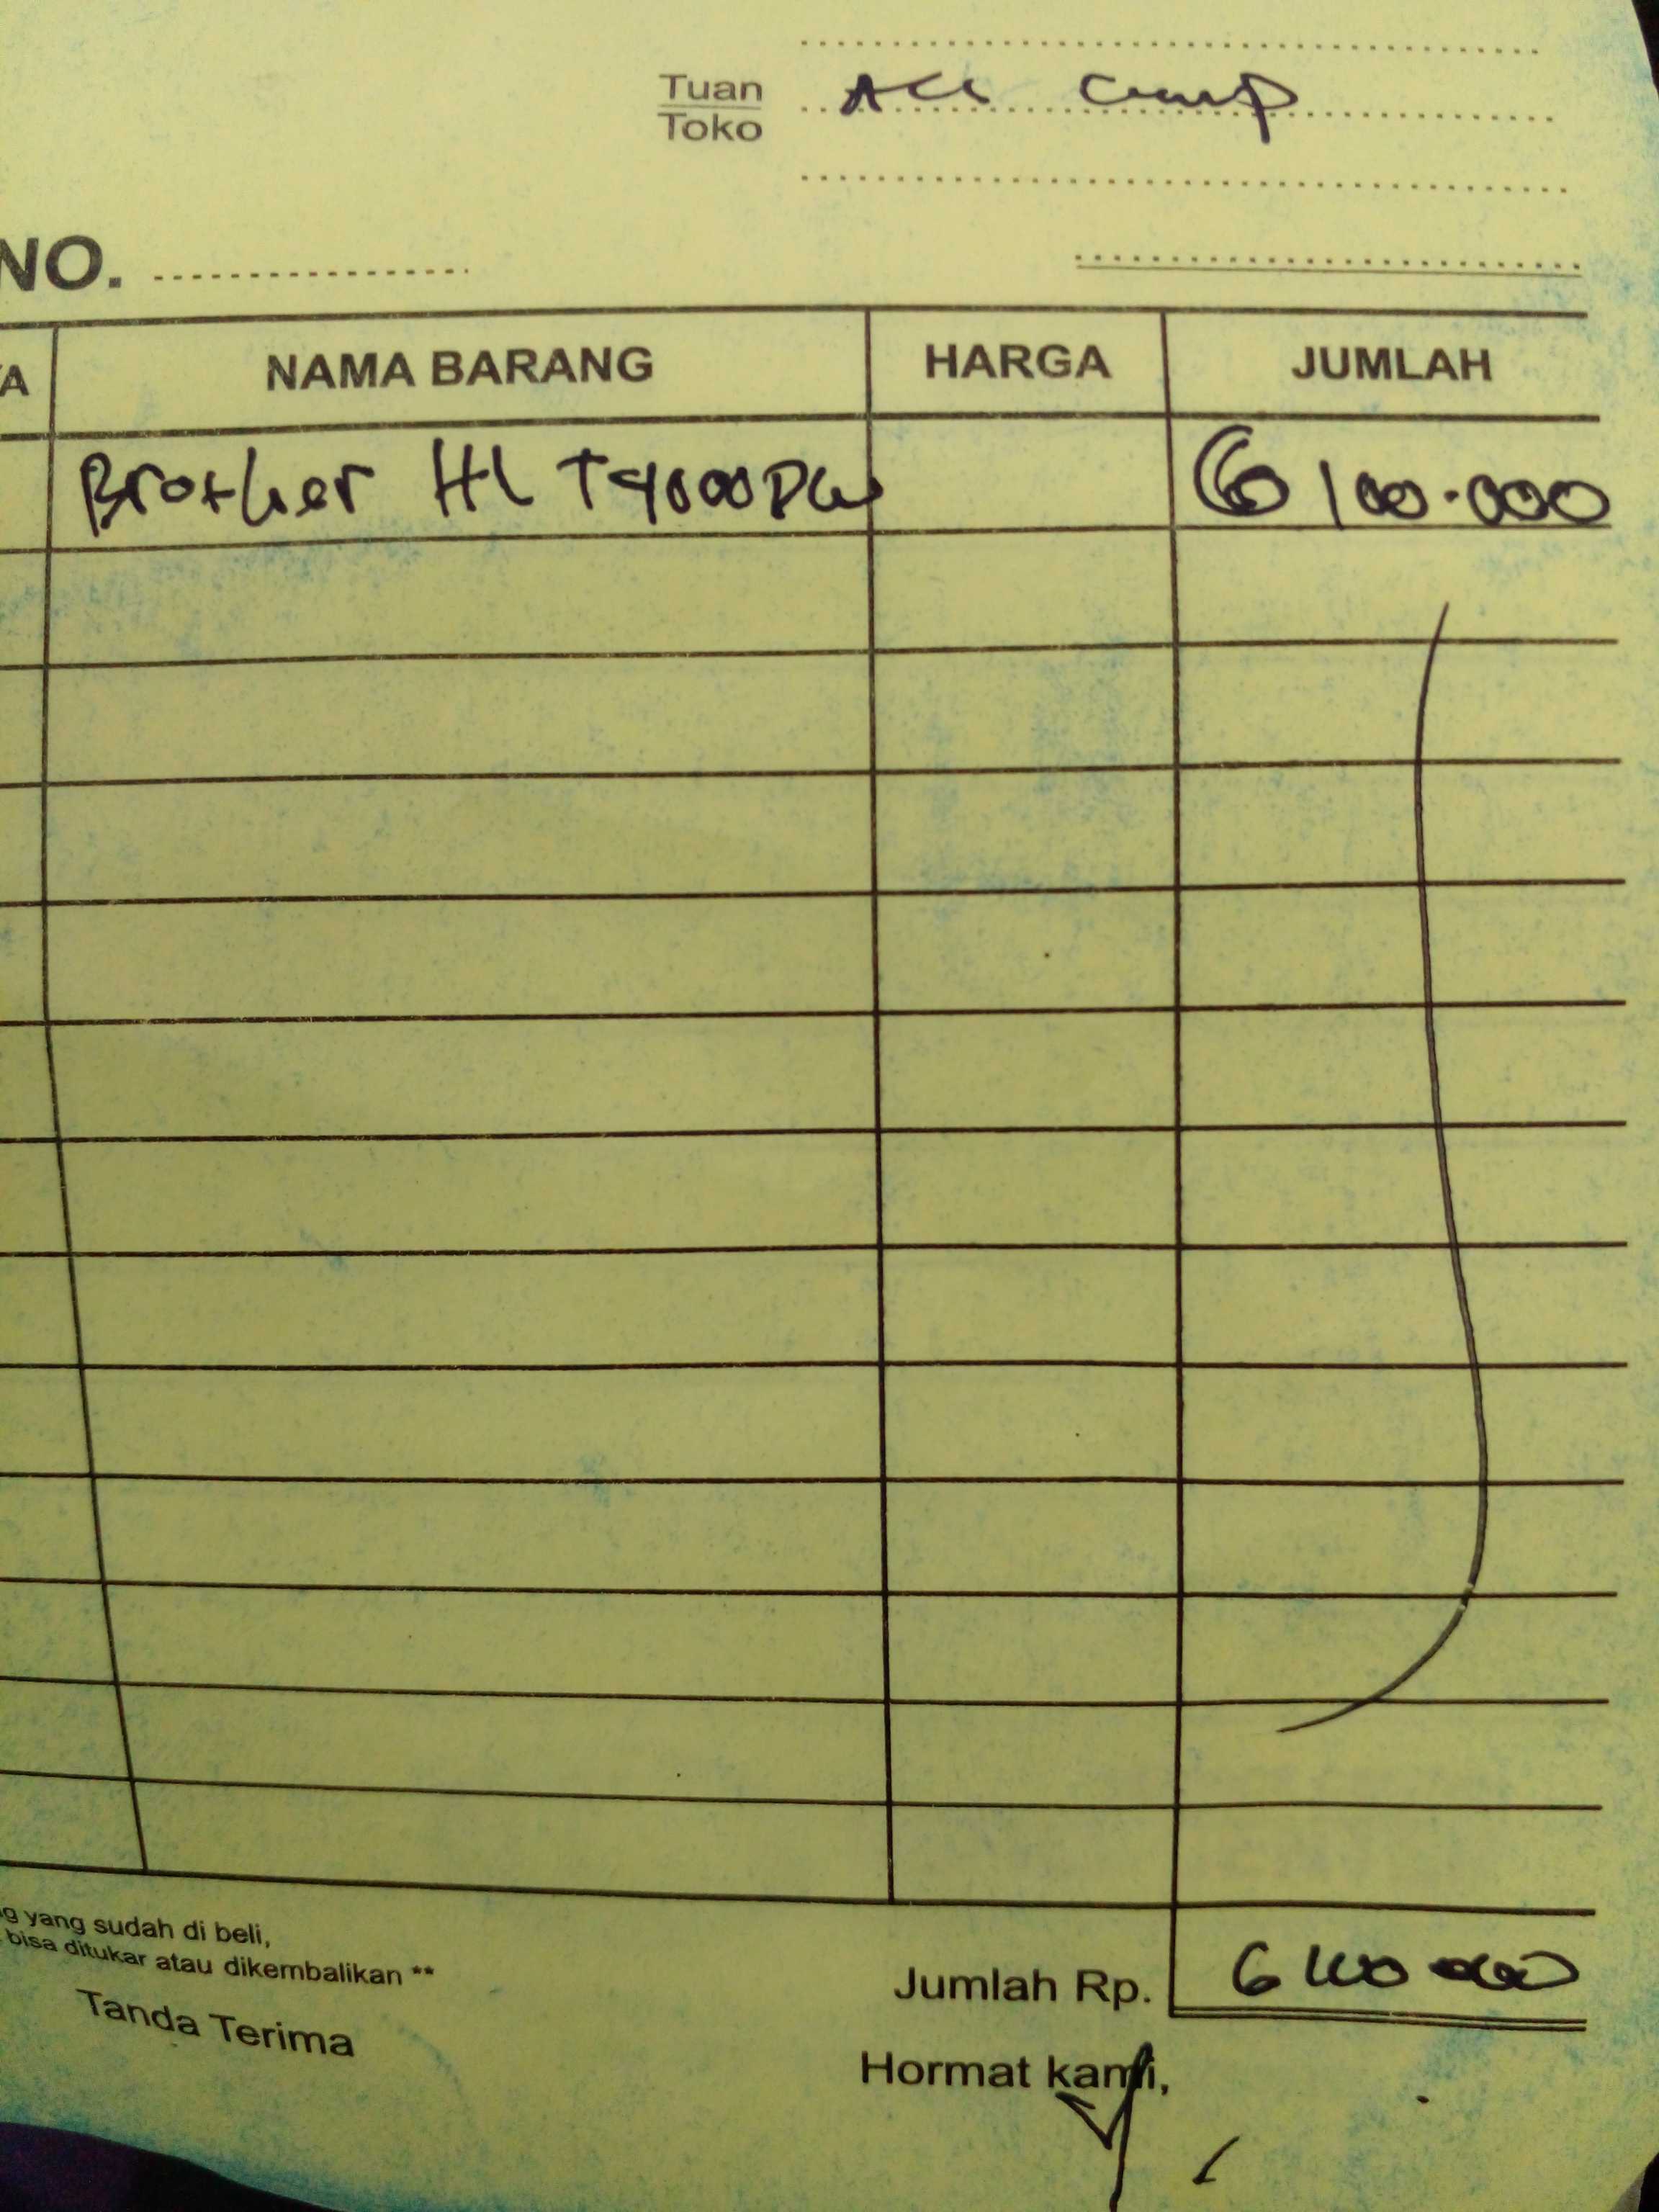 Tuan
Toko
Acc Comp
NO.
TA NAMA BARANG HARGA JUMLAH
Brother HL T4000DW 6 100.000
g yang sudah di beli,
bisa ditukar atau dikembalikan **
Tanda Terima
Jumlah Rp. 6 100 000
Hormat kami,